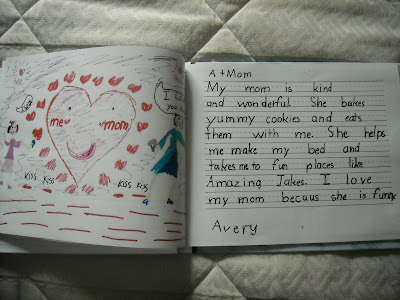 I
you
me mom
Kiss Kiss
Kiss Kiss
A + Mom
My mom is kind
and wonderful. She bakes
yummy cookies and eats
them with me. She helps
me make my bed and
takes me to fun places like
Amazing Jakes. I love
my mom becaus she is funny
Avery